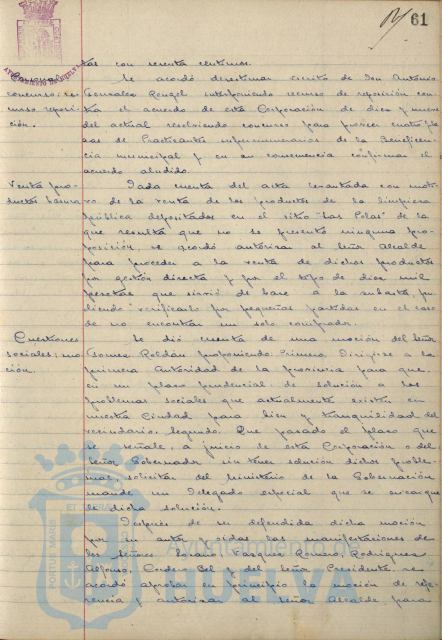 61
tas con sesenta céntimos.
Se acordó desestimar escrito de Don Antonio
concurso; re- Gonzalez Rengel interponiendo recurso de reposición con-
curso reposi- tra el acuerdo de esta Corporación de diez y nueve
ción. del actual resolviendo concurso para proveer cuatro pla-
zas de Practicantes supernumerarios de la Beneficen-
cia municipal y en su consecuencia confirmar el
acuerdo aludido.
Venta pro- Dada cuenta del acta levantada con moti-
ductos basura vo de la venta de los productos de la limpieza
pública depositados en el sitio "Las Colas" de la
que resulta que no se presentó ninguna pro-
posición, se acordó autorizar al Señor Alcalde
para proceder a la venta de dichos productos
por gestión directa y por el tipo de diez mil
pesetas que sirvió de base a la subasta, pu-
diendo verificarlo por pequeñas partidas en el caso
de no encontrar un solo comprador.
Cuestiones Se dió cuenta de una moción del Señor
sociales; mo- Gomez Roldán proponiendo: Primero. Dirigirse a la
ción. primera Autoridad de la provincia para que
en un plazo prudencial de solución a los
problemas sociales que actualmente existen en
nuestra Ciudad para bien y tranquilidad del
vecindario. Segundo. Que pasado el plazo que
se señale, a juicio de esta Corporación o del
Señor Gobernador sin tener solución dichos proble-
mas, solicitar del Ministerio de la Gobernación
mande un Delegado especial que se encargue
de dicha solución.
Después de ser defendida dicha moción
por su autor y oidas las manifestaciones de
los Señores Vazquez Romero, Rodriguez
Alfonso, Cordero Bel y del Señor Presidente, se
acordó aprobar en principio la moción de refe-
rencia y autorizar al Señor Alcalde para
Ayuntamiento de
HUELVA